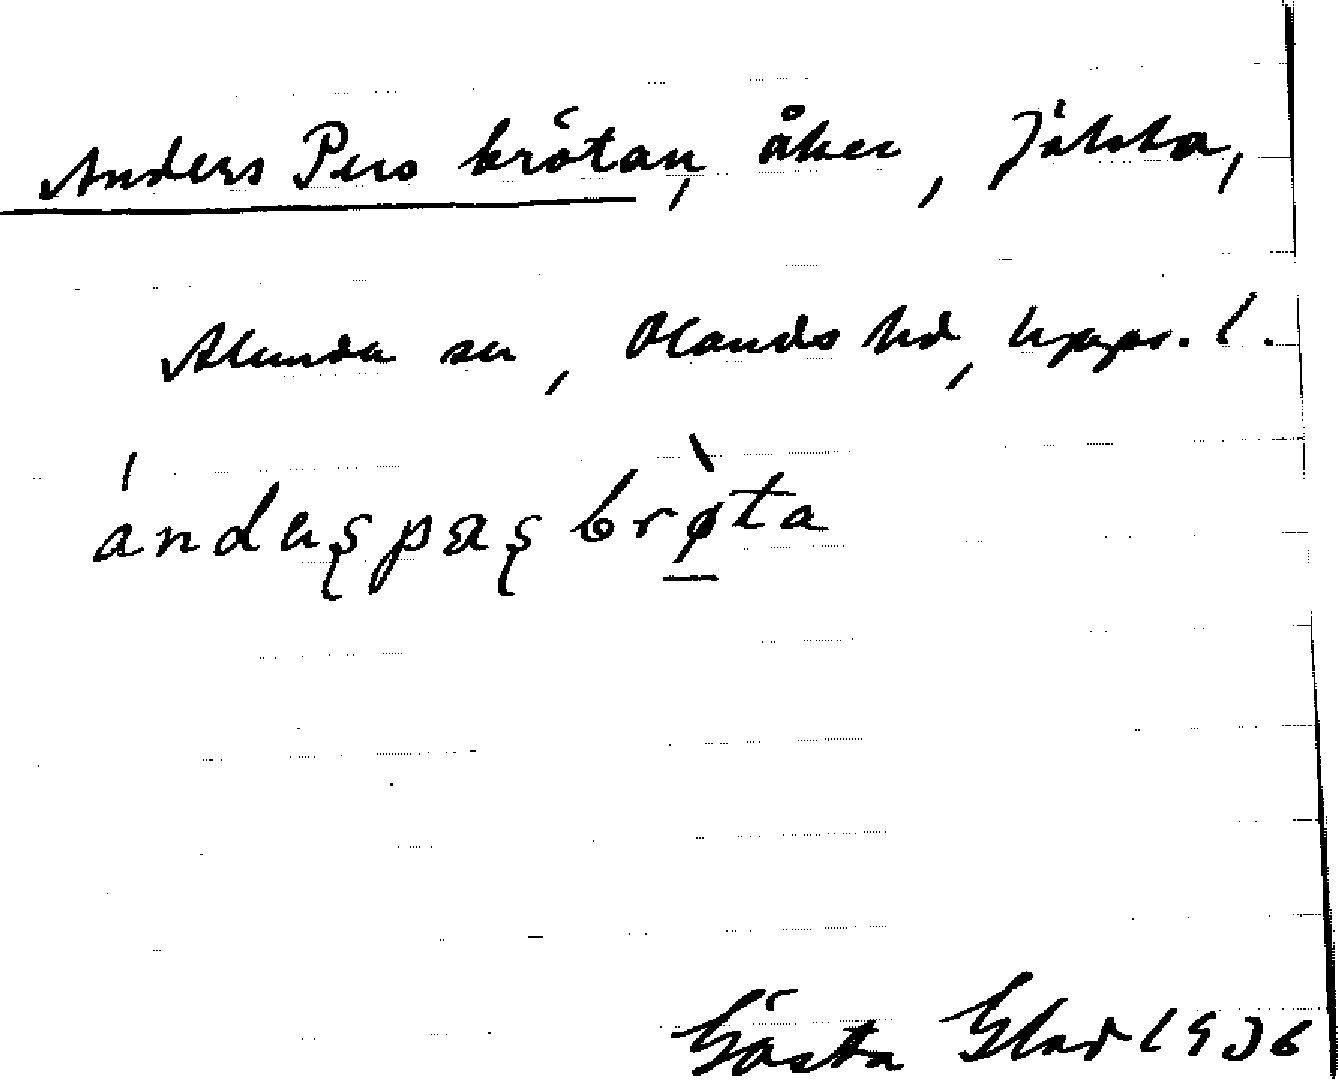 Anders Pers brötan, åker, Jälsta,
Alunda sn, Olands hd, Upps. l.
ándeʂpæʂbrø̀ta
Gösta Elar 1936